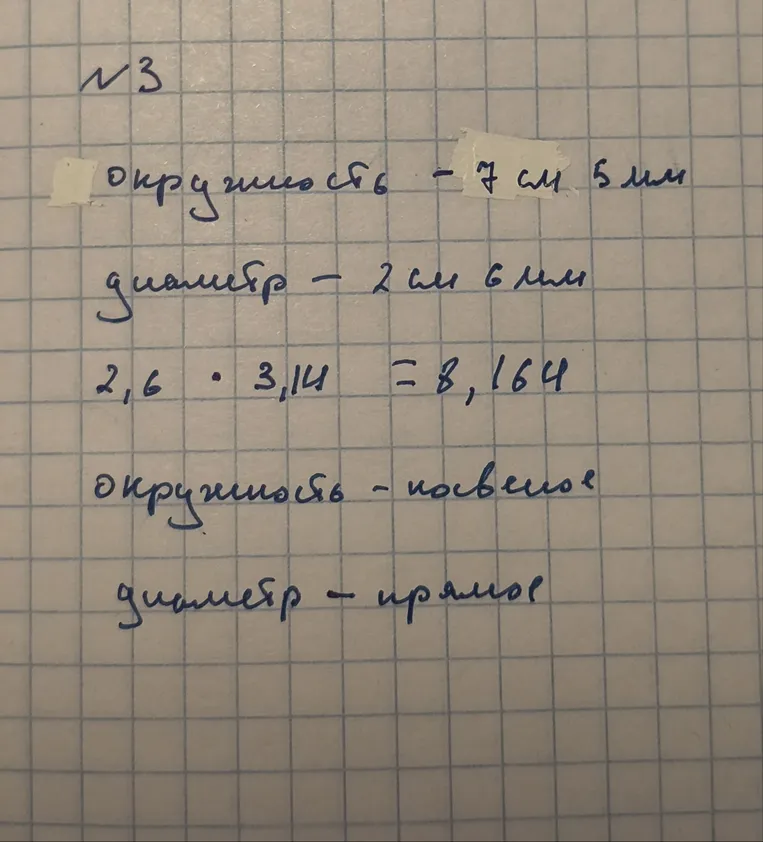 №3
окружность - 7 см 5 мм
диаметр - 2 см 6 мм
2,6 · 3,14 = 8,164
окружность - косвеное
диаметр - прямое